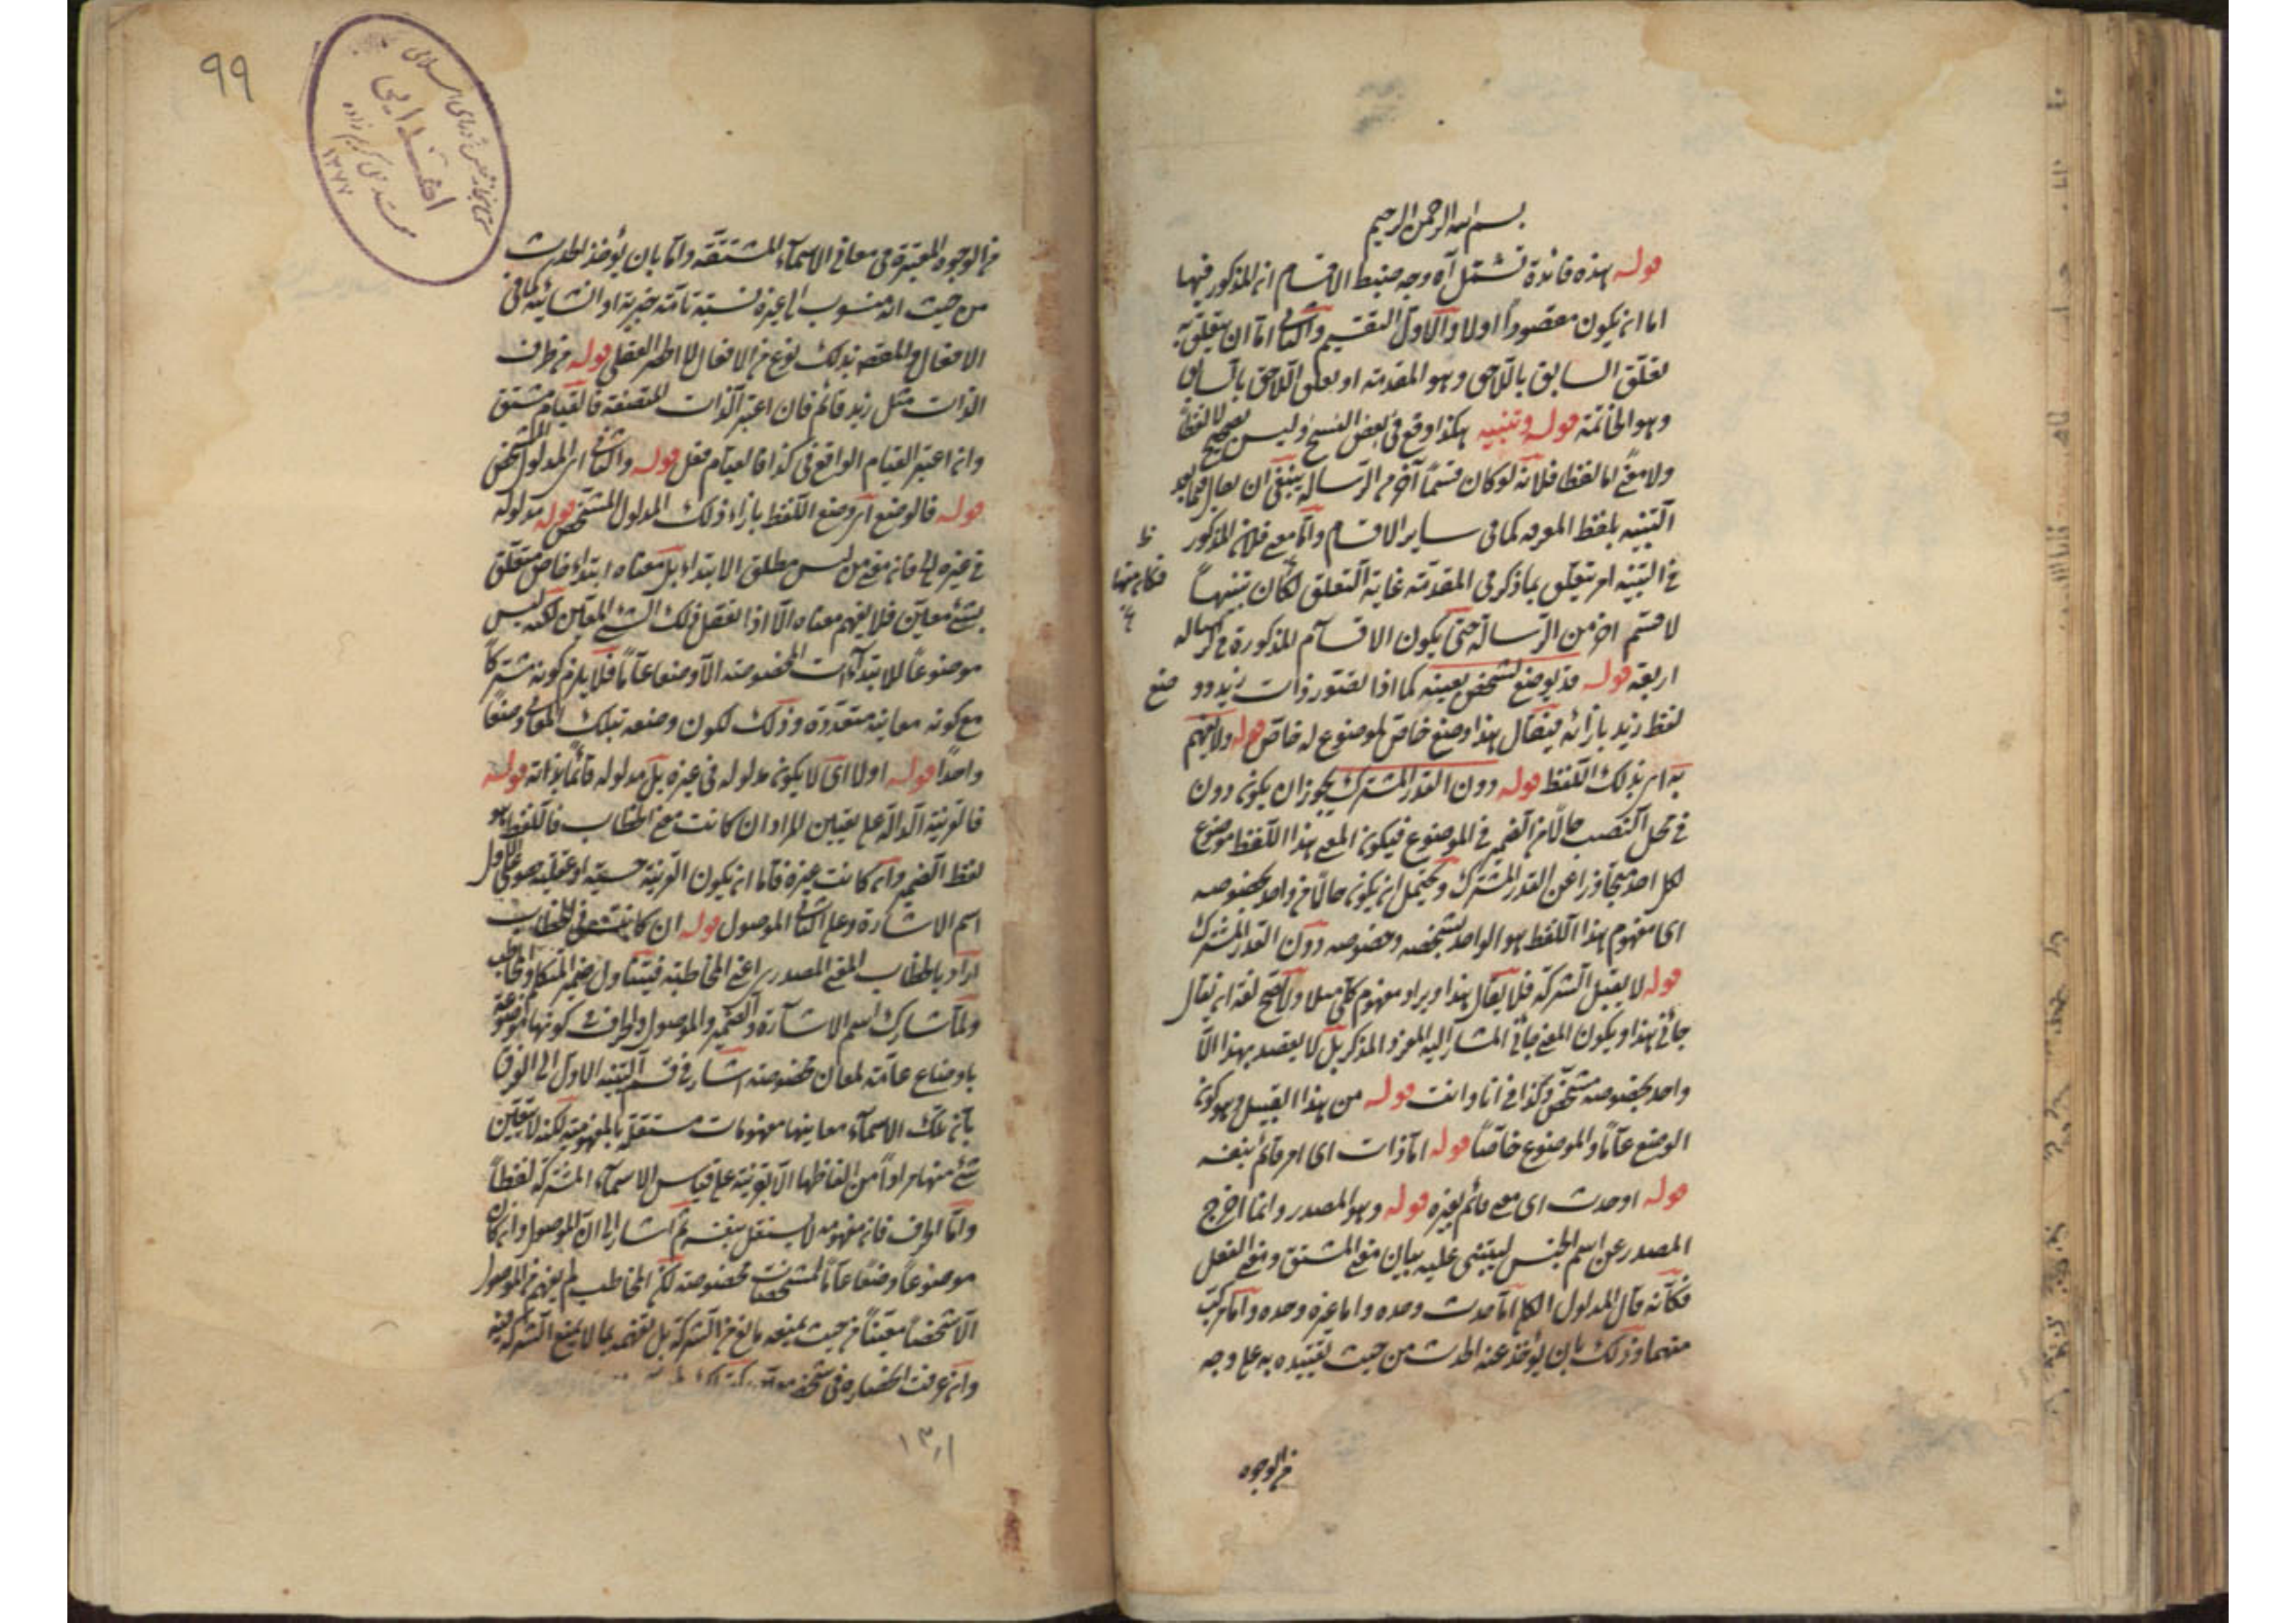 بسم الله الرحمن الرحيم
قوله هذه فائدة تشتمل آه وجه ضبط الاقسام ان المذكور فيها
اما ان يكون مقصوداً اولا والاول التقسيم والثانى اما ان يتعلق به
تعلق السابق باللاحق وهو المقدمة او تعلق اللاحق بالسابق
وهو الخاتمة قوله وتنبيه هكذا وقع فى بعض النسخ وليس بصحيح لا لفظاً
ولا معنى اما لفظا فلانه لو كان قسماً آخر من الرسالة ينبغى ان يقال فيما بعد
التنبيه بلفظ المعرفه كما فى ساير الاقسام واما معنى فلان المذكور
فى التنبيه امر يتعلق بما ذكر فى المقدمة غاية التعلق لكان تنبيهاً
لا قسم اخر من الرسالة حتى يكون الاقسام المذكورة فى الرسالة
اربعة قوله قد يوضع لشخص بعينه كما اذا تصور ذات زيد وو
ضع
لفظ زيد بازائه فيقال هذا وضع خاص لموضوع له خاص قوله ولا يفهم
به اى بذلك اللفظ قوله دون القدر المشترك يجوز ان يكون دون
فى محل النصب حالا من الضمير فى الموضوع فيكون المعنى هذا اللفظ موضوع
لكل احد متجاوزا عن القدر المشترك ويحتمل ان يكون حالا من واحد بخصوصه
اى مفهوم هذا اللفظ هو الواحد بشخصه وخصوصه دون القدر المشترك
قوله لا يقبل الشركة فلا يقال هذا ويراد مفهوم كلى مثلا ولا يصح لغة ان يقال
جائنى هذا ويكون المعنى جائنى المشار اليه المفرد المذكر بل لا يقصد بهذا الا
واحد بخصوصه مشخص وكذا فى انا وانت قوله من هذا القبيل وهو كون
الوضع عاماً والموضوع خاصاً قوله اما ذات اى امر قائم بنفسه
قوله او حدث اى معنى قائم بغيره قوله وهو المصدر وانما اخرج
المصدر عن اسم الجنس ليبتنى عليه بيان معنى المشتق ومعنى الفعل
فكانه قال المدلول الكلى اما حدث وحده واما غيره وحده واما مركب
منهما وذلك بان يؤخذ عنه الحدث من حيث تقييده به على وجه
من الوجوه
٩٩
١٣٧٧
من الوجوه المعتبرة فى معانى الاسماء المشتقة واما بان يؤخذ الحدث
من حيث انه منسوب الى غيره نسبة تامة خبرية او انشائية كما فى
الافعال بذلك نوع من الافعال لا الحصر العقلى قوله من طرف
الذات مثل زيد قائم فان اعتبر الذات المتصفة فالقيام مشتق
وان اعتبر القيام الواقع فى كذا فالقيام فعل قوله والثانى اى المدلول المشخص
قوله فالوضع اى وضع اللفظ بازاء ذلك المدلول المشخص قوله مدلوله
فى غيره الخ فان معنى من ليس مطلق الابتداء بل معناه ابتداء خاص متعلق
بشئ معين فلا يفهم معناه الا اذا تعقل ذلك الشئ المعين لكنه ليس
موضوعاً للابتداآت المخصوصه الا وضعا عاما فلا يلزم كونه مشتركاً
مع كونه معانيه متعددة وذلك لكون وضعه بتلك المعانى وضعاً
واحداً قوله اولا اى لا يكون مدلوله فى غيره بل مدلوله قائما بذاته قوله
فالقرينة الدالة على تعيين المراد ان كانت معنى الخطاب فاللفظ هو
لفظ الضمير وان كانت غيره فاما ان يكون القرينة حسية او عقلية فعلى الاول
اسم الاشارة وعلى الثانى الموصول قوله ان كانت فى الخطاب
اراد بالخطاب المعنى المصدرى اعنى المخاطبة فيتناول ضمير المتكلم والمخاطب
ولما شارك اسم الاشارة والضمير والموصول والحرف فى كونها موضوعة
باوضاع عامة لمعان مخصوصة اشار فى قسم التنبيه الاول الى الفرق
بان تلك الاسماء معانيها مفهومات مستقلة بالمفهومية لكنه لا يتعين
شئ منها مراداً من الفاظها الا بقرينة على قياس الاسماء المشتركة لفظاً
واما الحرف فان مفهومه لا يستقل بنفسه ثم اشار الى ان الموصول وان كان
موضوعاً وضعا عاماً لمشخصات مخصوصه لكن المخاطب لم يفهم من الموصول
الا شخصا معيناً من حيث يمنعه مانع من الشركة بل تفهمه بما لا يمنع الشركة فيه
وان عرفت انحصاره فى شخص